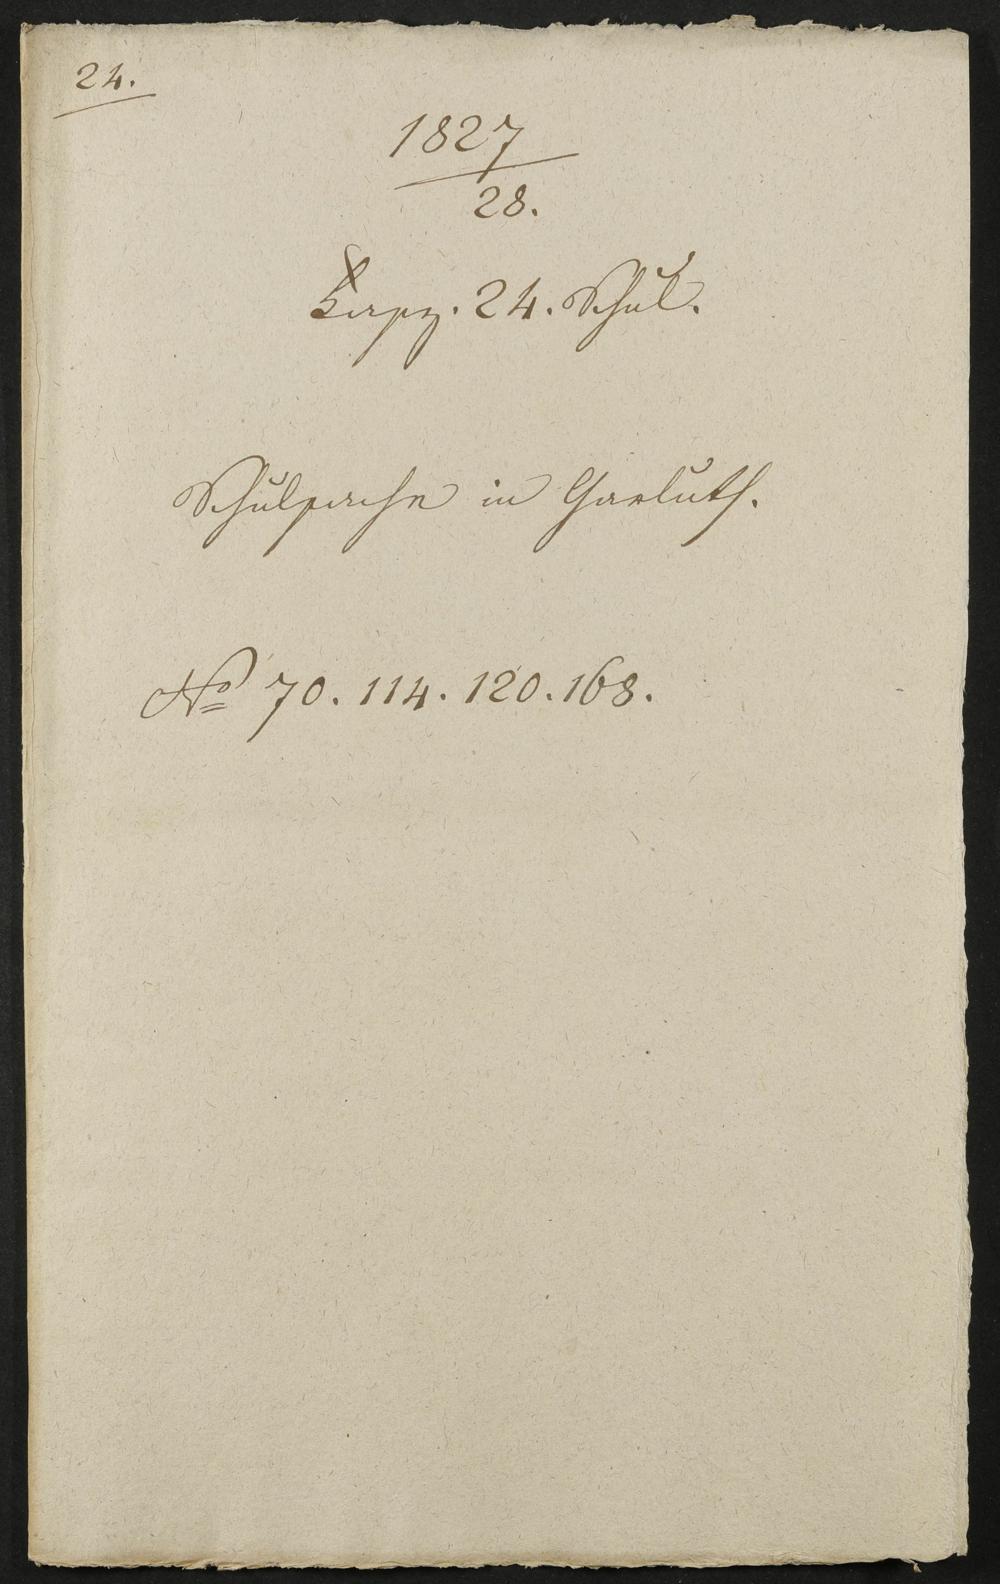 24.
1827
28.
Kapz. 24. Schul.
Schulsache in Garluth.
No 70. 114. 120. 168.